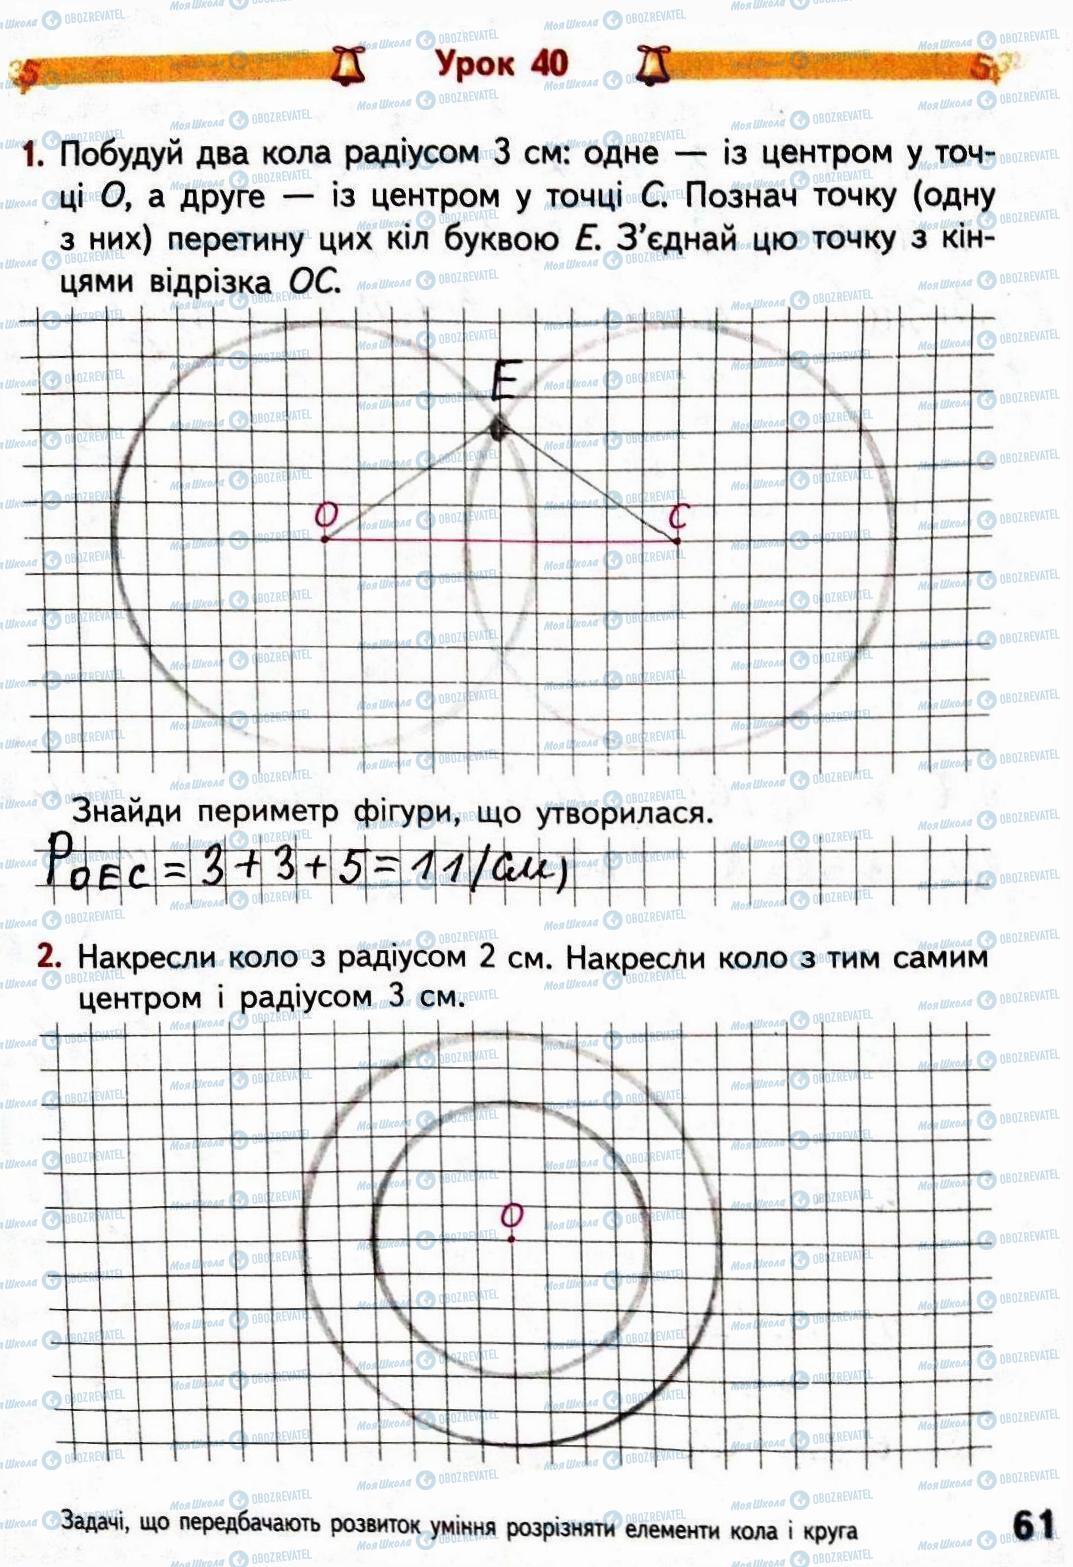 Урок 40
1. Побудуй два кола радіусом 3 см: одне — із центром у точ-
ці О, а друге — із центром у точці С. Познач точку (одну
з них) перетину цих кіл буквою Е. З'єднай цю точку з кін-
цями відрізка ОС.
E
О
С
Знайди периметр фігури, що утворилася.
P ОЕС = 3 + 3 + 5 = 11 (см)
2. Накресли коло з радіусом 2 см. Накресли коло з тим самим
центром і радіусом 3 см.
О
Задачі, що передбачають розвиток уміння розрізняти елементи кола і круга
61
МояШкола OBOZREVATEL